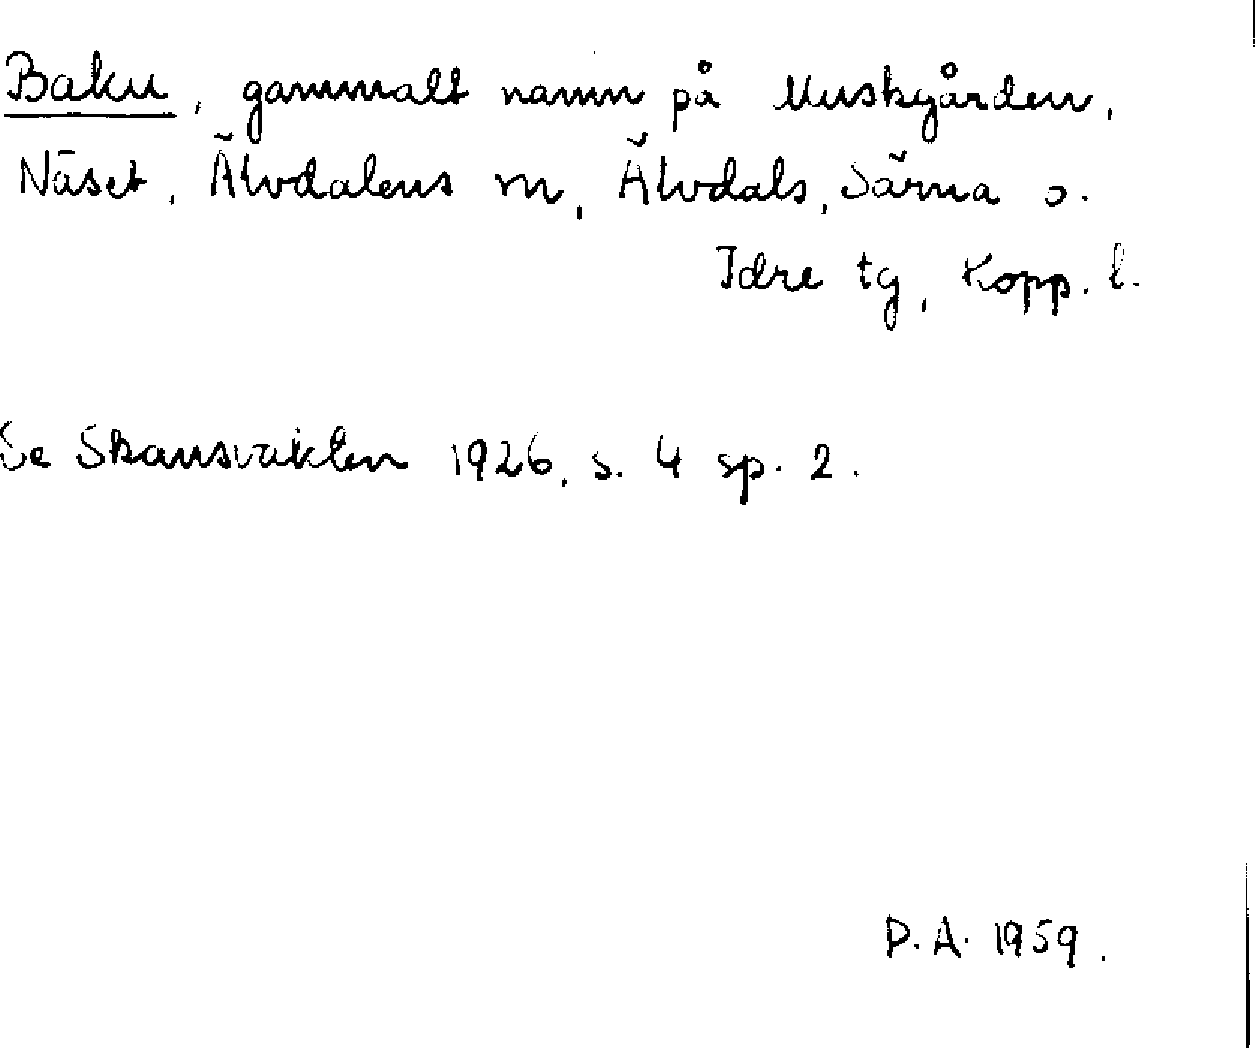 Baku, gammalt namn på Muskgården,
Näset, Älvdalens m, Älvdals, Särna o.
Idre tg, Kopp. l.
Se Skansvakten 1926, s. 4 sp. 2.
D.A. 1959.